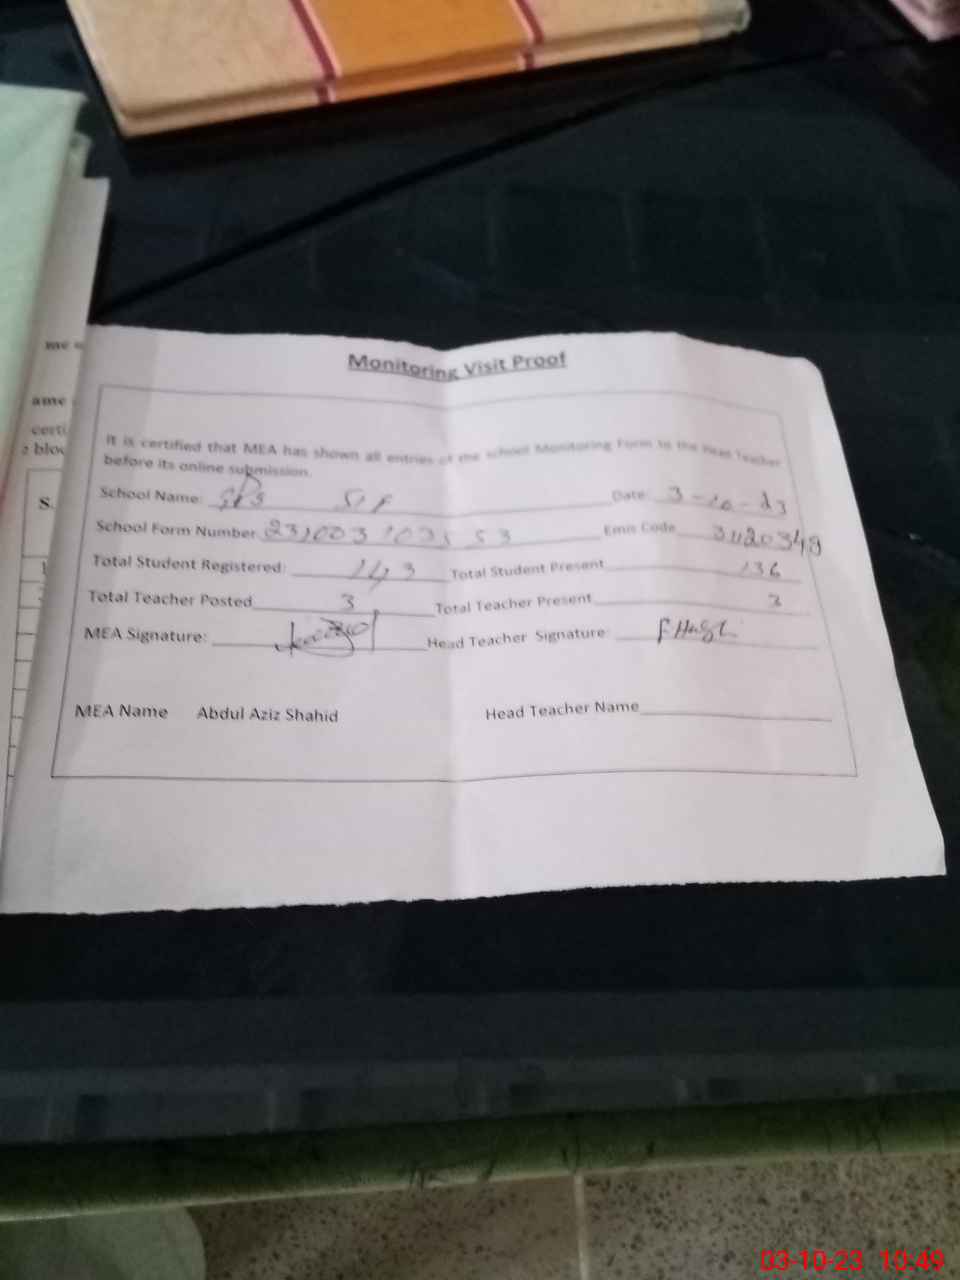 Monitoring Visit Proof
It is certified that MEA has shown all entries of the school Monitoring Form to the Head Teacher
before its online submission.
School Name: Date: 3-10-23
School Form Number Emis Code
Total Student Registered: 143 Total Student Present 136
Total Teacher Posted 3 Total Teacher Present 3
MEA Signature: Head Teacher Signature:
MEA Name Abdul Aziz Shahid Head Teacher Name
me
ame
certi
bloc
S.
03-10-23 10:49